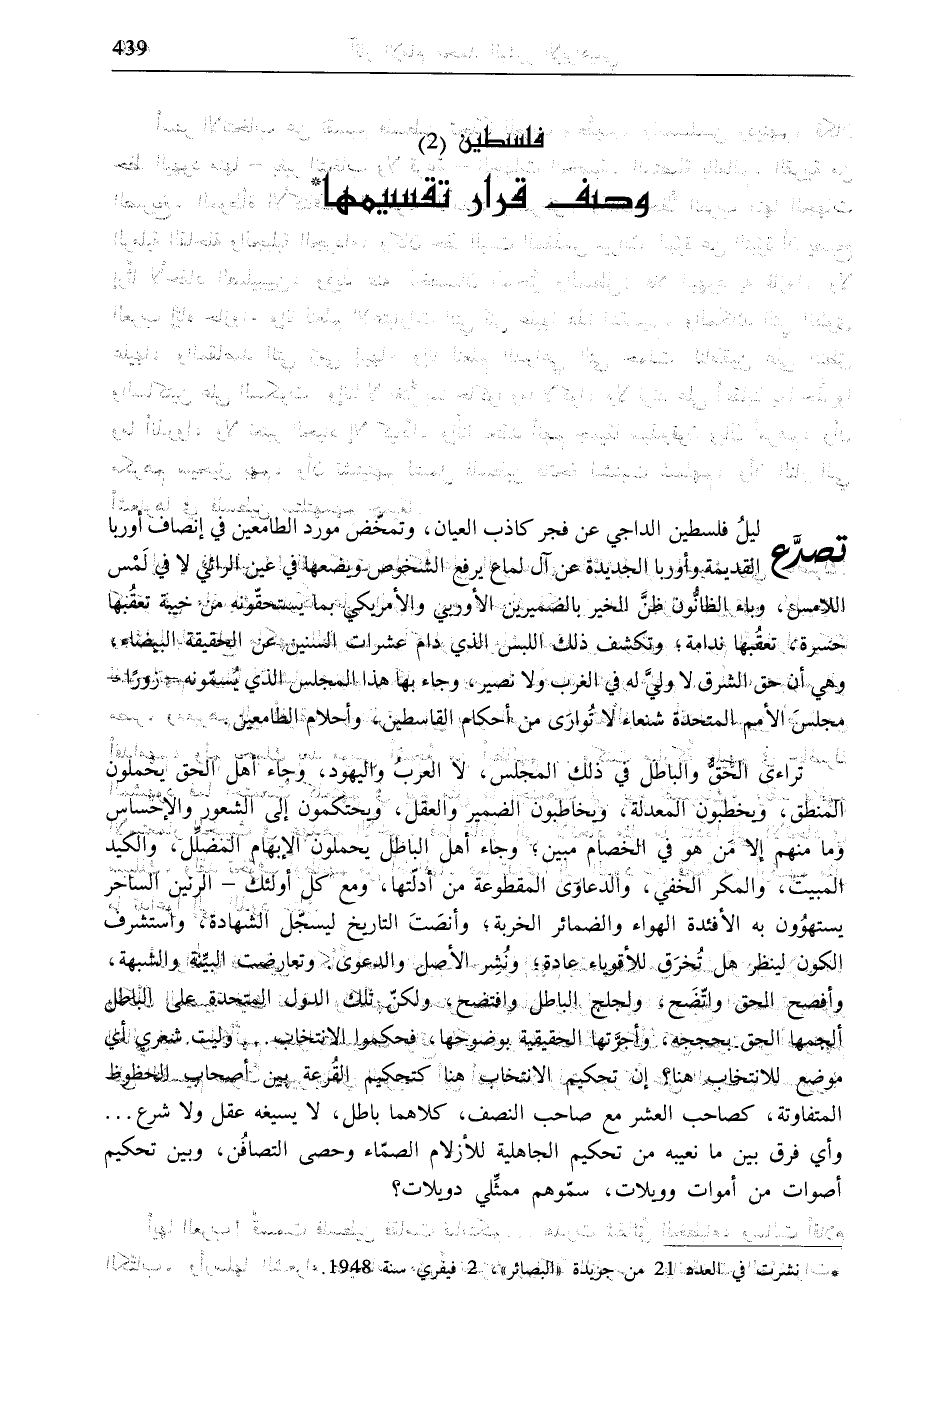 439
فلسطين (2)
وصف قرار تقسيمها*
تصرَّع ليلُ فلسطين الداجي عن فجر كاذب العيان، وتمخّض مورد الطامعين في إنصاف أوربا
القديمة وأوربا الجديدة عن آل لماع يرفع الشخوص ويضعها في عين الرائي لا في لَمْس
اللامس، وباء الظانُّون ظنَّ الخير بالضميرين الأوربي والأمريكي بما يستحقّونه من خيبة تعقُبها
حسرة، تعقُبها ندامة؛ وتكشف ذلك اللبس الذي دام عشرات السنين عن الحقيقة البيضاء؛
وهي أن حق الشرق لا وليَّ له في الغرب ولا نصير، وجاء بها هذا المجلس الذي يُسمّونه – زورًا –
مجلسَ الأمم المتحدة شنعاء لا تُوارَى من أحكام القاسطين، وأحلام الطامعين.
تراءى الحقُّ والباطل في ذلك المجلس، لا العربُ واليهود، وجاء أهل الحق يحملون
المنطق، ويخطبون المعدلة، ويخاطبون الضمير والعقل، ويحتكمون إلى الشعور والإحساس
وما منهم إلا مَن هو في الخصام مبين؛ وجاء أهل الباطل يحملون الإبهام المضلِّل، والكيد
المبيت، والمكر الخفي، والدعاوى المقطوعة من أدلّتها، ومع كل أولئك – الرنين الساحر
يستهوُون به الأفئدة الهواء والضمائر الخربة؛ وأنصَتَ التاريخ ليسجّل الشهادة، واستشرف
الكون لينظر هل تُخرَق للأقوياء عادة؛ ونُشر الأصل والدعوى. وتعارضت البيِّنة والشبهة،
وأفصح الحق واتّضَح، ولجلج الباطل وافتضح، ولكنّ تلك الدول المتحدة على الباطل
ألجمها الحق بحججه، وأجرَّتها الحقيقية بوضوحها، فحكموا الانتخاب... وليت شعري أي
موضع للانتخاب هنا؟ إن تحكيم الانتخاب هنا كتحكيم القُرعة بين أصحاب الحظوظ
المتفاوتة، كصاحب العشر مع صاحب النصف، كلاهما باطل، لا يسيغه عقل ولا شرع...
وأي فرق بين ما نعيبه من تحكيم الجاهلية للأزلام الصمّاء وحصى التصافُن، وبين تحكيم
أصوات من أموات وويلات، سمّوهم ممثِّلي دويلات؟
* نشرت في العدد 21 من جريدة «البصائر»، 2 فيفري سنة 1948.